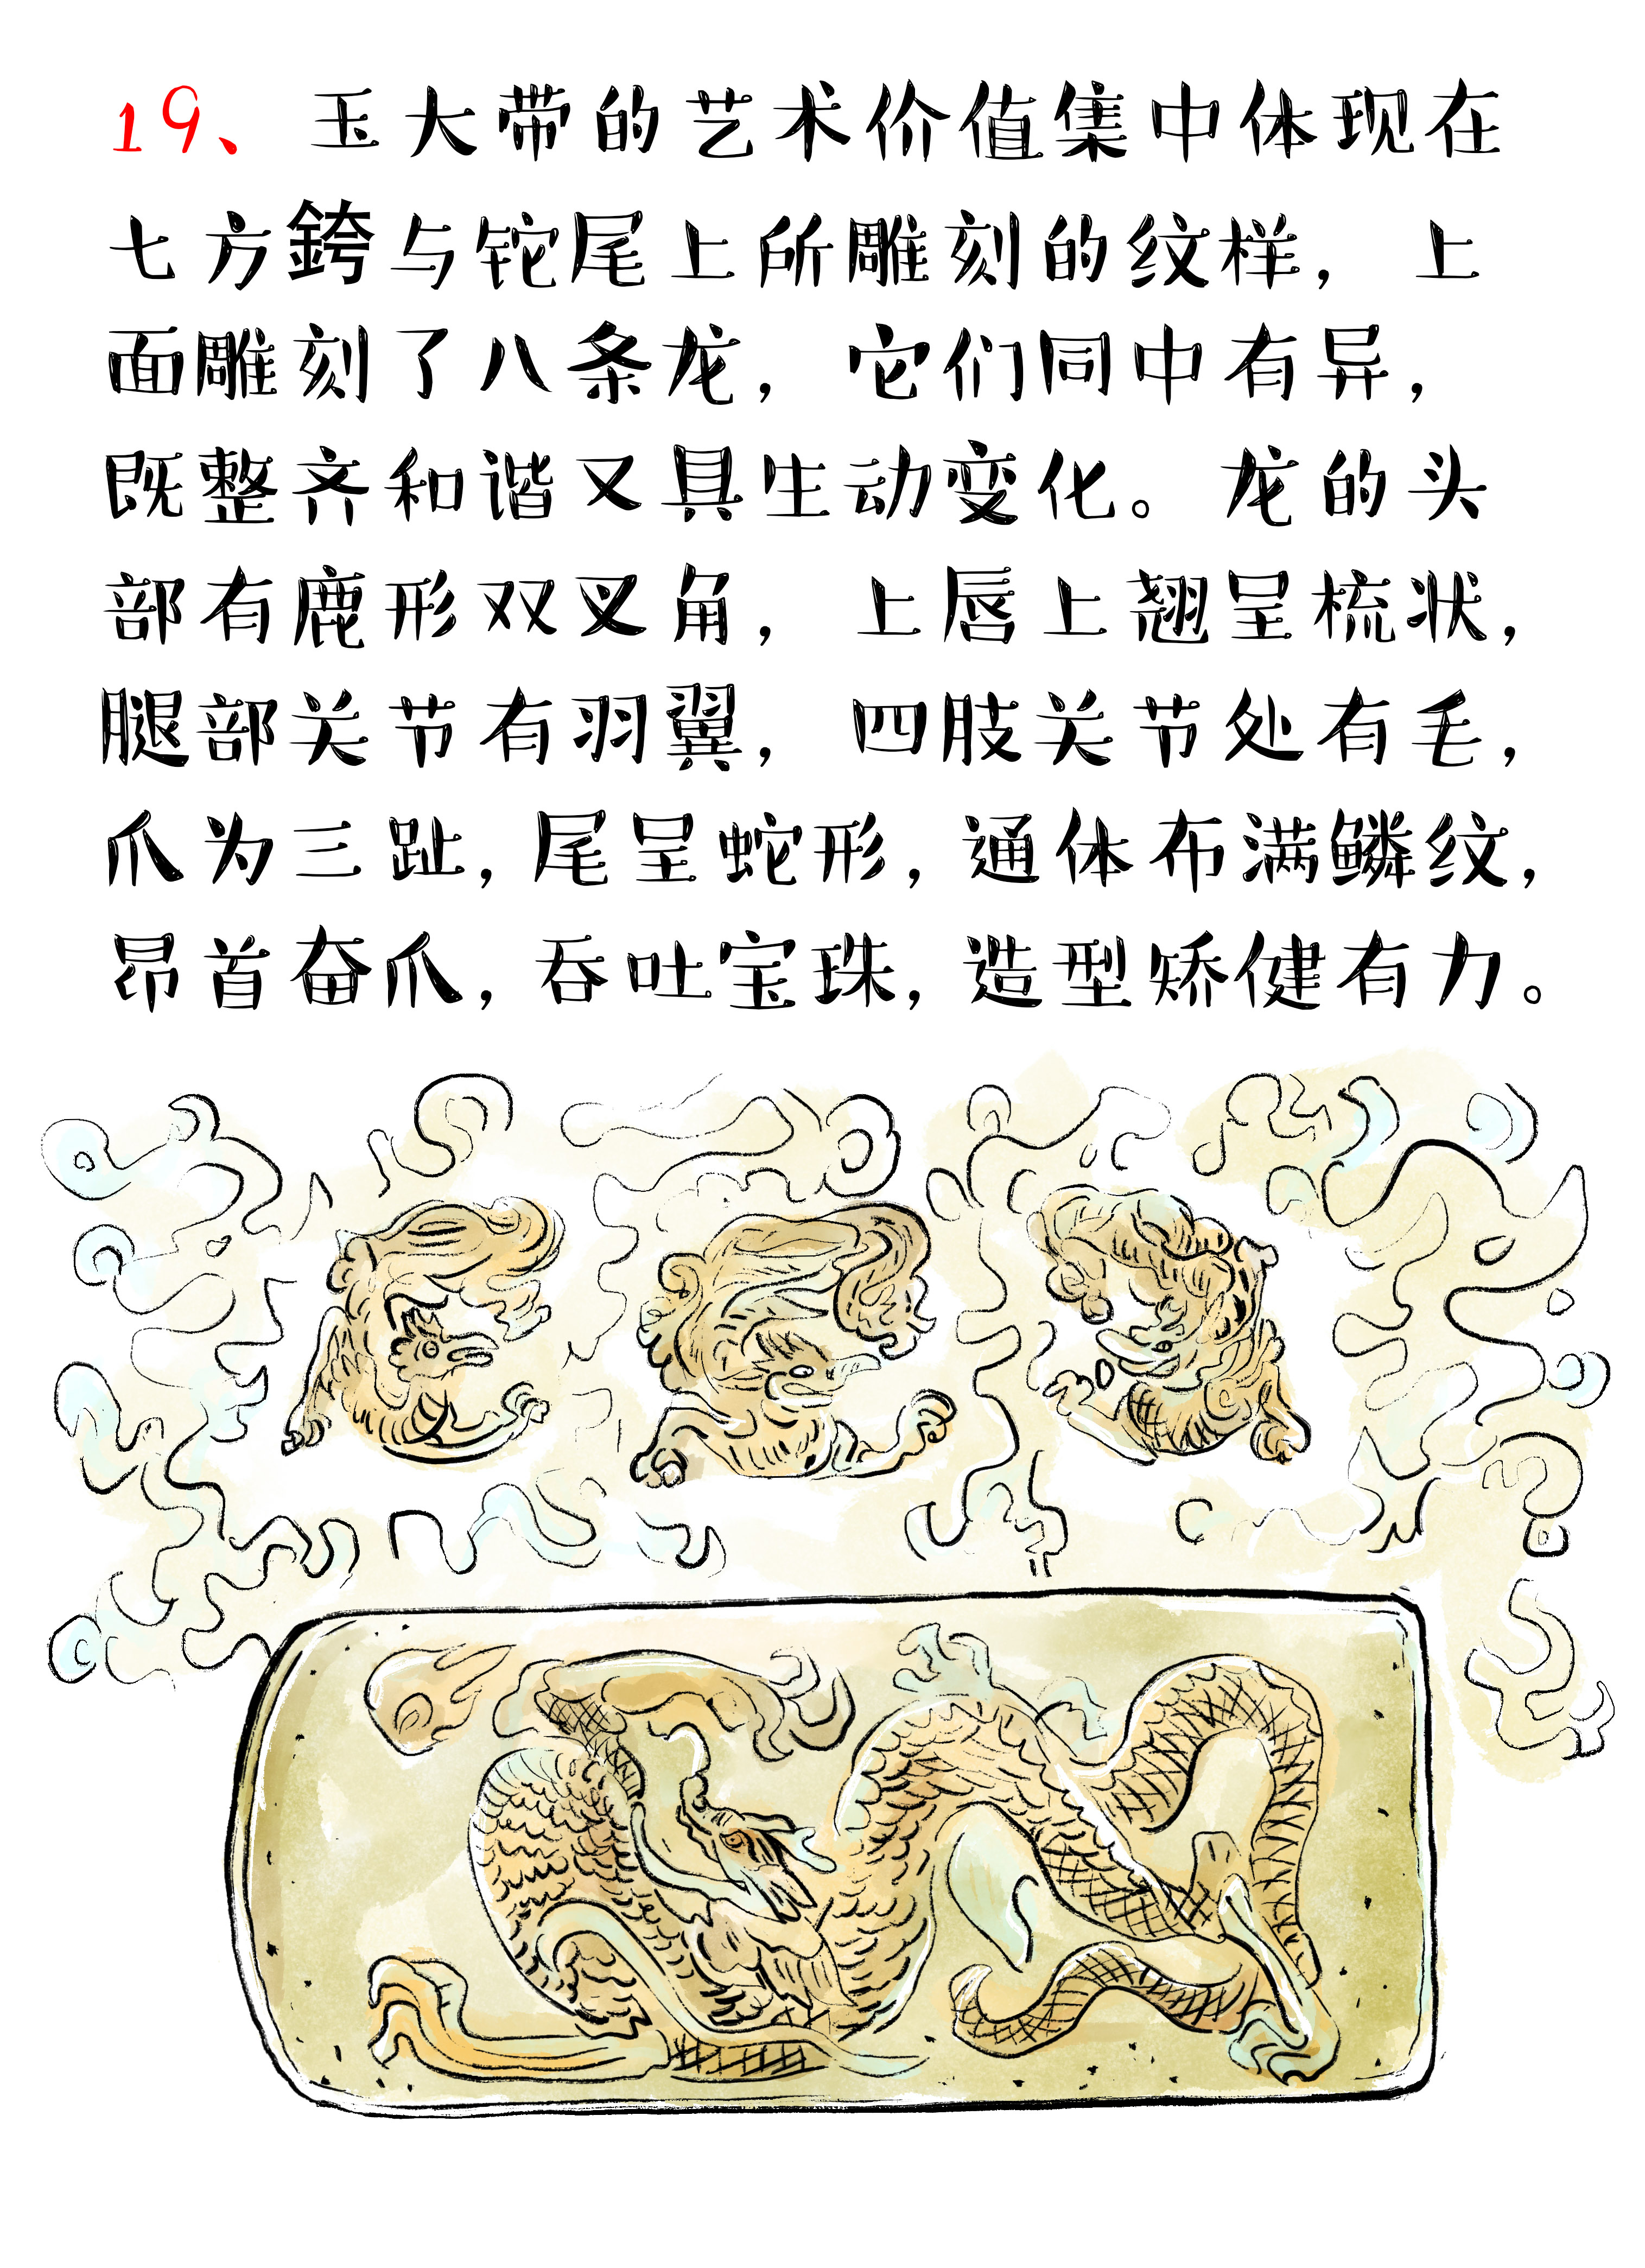 19、玉大带的艺术价值集中体现在
七方銙与铊尾上所雕刻的纹样，上
面雕刻了八条龙，它们同中有异，
既整齐和谐又具生动变化。龙的头
部有鹿形双叉角，上唇上翘呈梳状，
腿部关节有羽翼，四肢关节处有毛，
爪为三趾，尾呈蛇形，通体布满鳞纹，
昂首奋爪，吞吐宝珠，造型矫健有力。